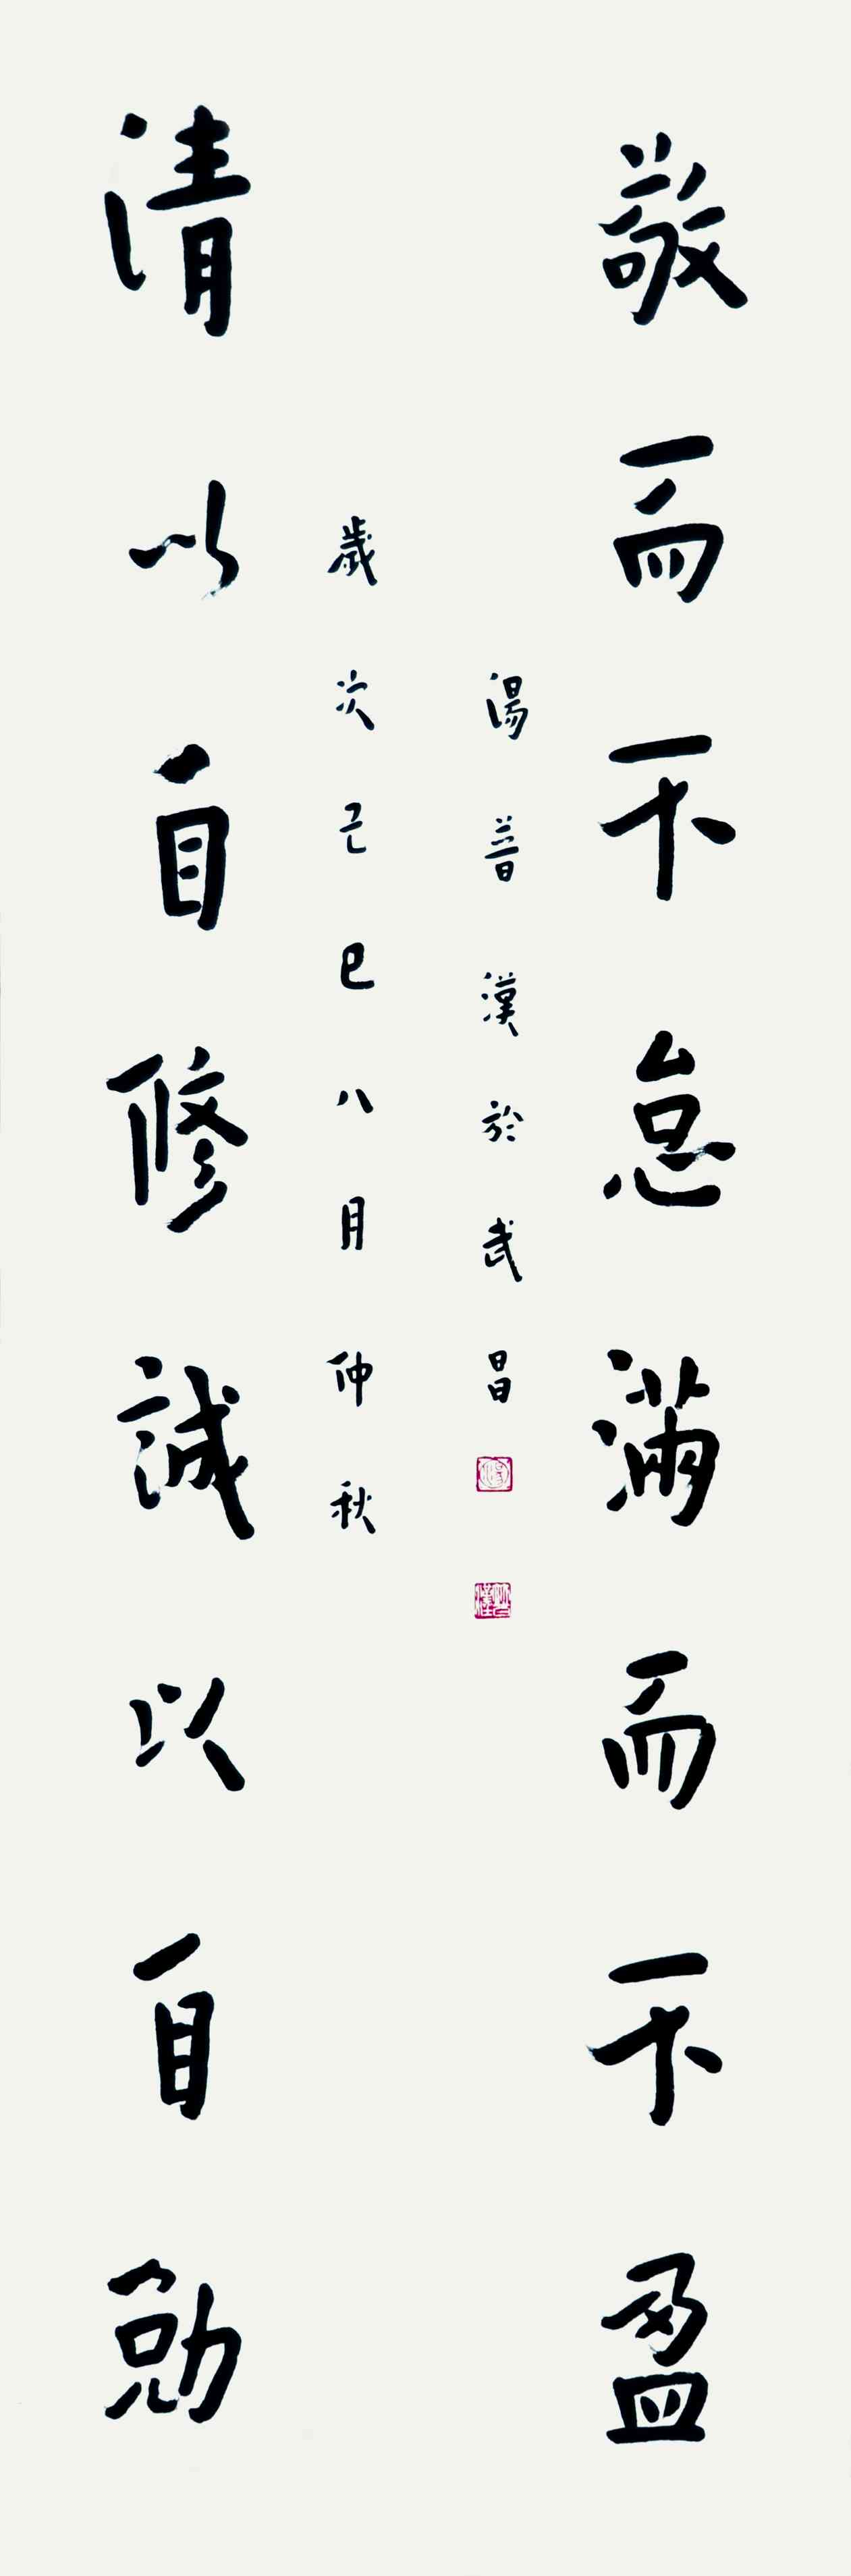 敬而不怠滿而不盈
湯普漢於武昌
歲次己巳八月仲秋
清以自修誠以自勉